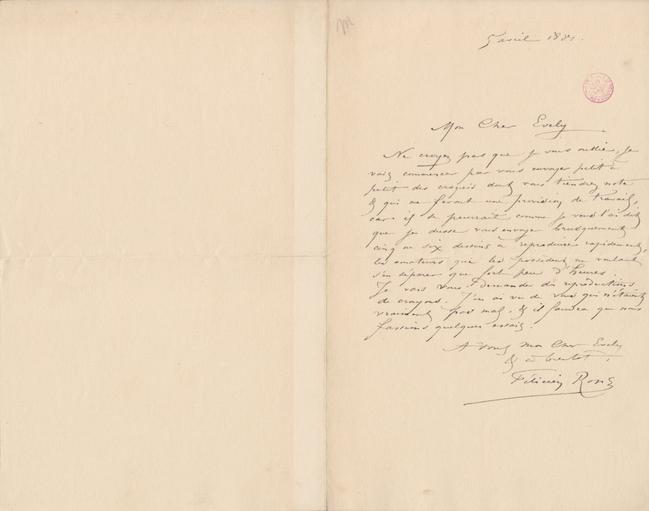 5 avril 188
Mon Cher Evely
Ne croyez pas que je vous oublie, Je
vais commencer par vous envoyer petit à
petit des croquis dont vous tiendrez note
& qui me feront une provision de travail,
car il se pourrait comme je vous l'ai dit
que je dusse vous envoyer brusquement
cinq ou six dessins à reproduire rapidement,
les amateurs qui les possèdent ne voulant
s'en séparer que fort peu d'heures.
Je vais vous demander des reproductions
de crayons. J'en ai vu de vous qui n'étaient
vraiment pas mal. & il faudra que nous
fassions quelques essais.
A vous mon Cher Evely
& à bientot.
Félicien Rops